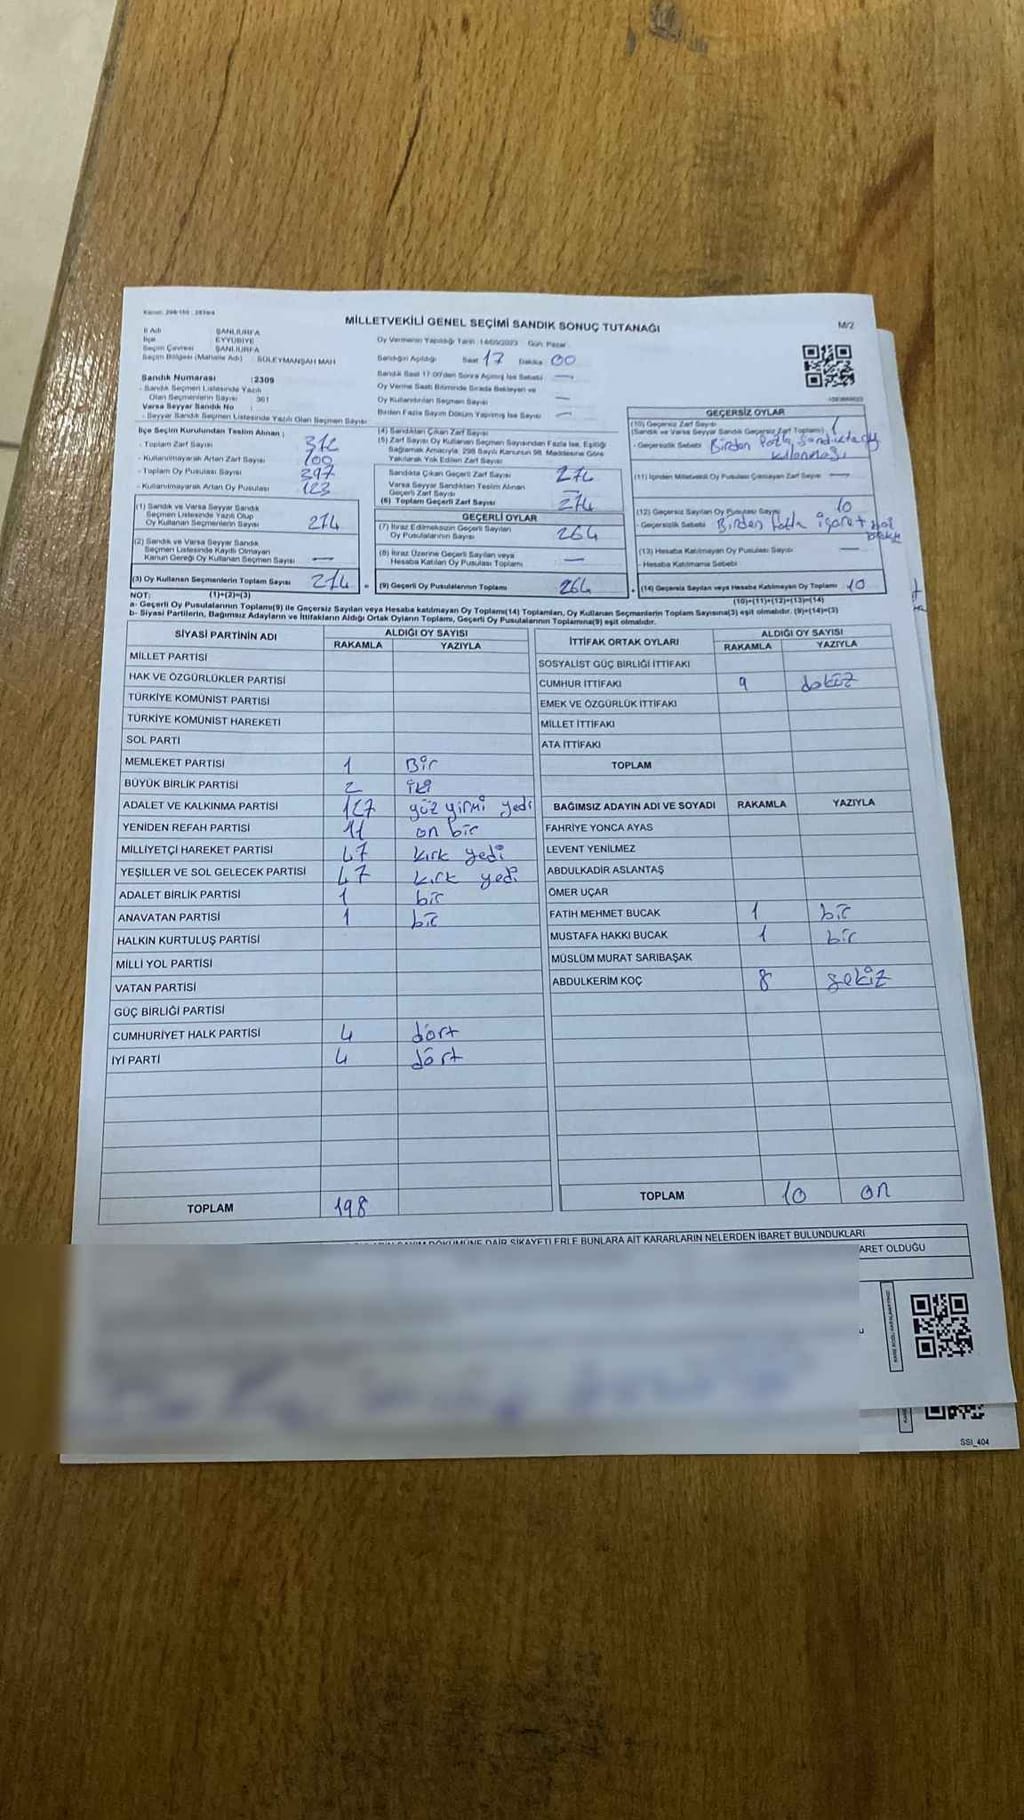 MİLLETVEKİLİ GENEL SEÇİMİ SANDIK SONUÇ TUTANAĞI
M/2
İl Adı : ŞANLIURFA
İlçe : EYYÜBİYE
Seçim Çevresi : ŞANLIURFA
Seçim Bölgesi (Mahalle Adı) : SÜLEYMANŞAH MAH
Oy Vermenin Yapıldığı Tarih : 14/05/2023 Gün: Pazar
Sandığın Açıldığı Saat 17 Dakika 00
Sandık Saat 17:00'den Sonra Açılmış İse Sebebi —
Oy Verme Saati Bitiminde Sırada Bekleyen ve
Oy Kullandırılan Seçmen Sayısı —
Birden Fazla Sayım Döküm Yapılmış İse Sayısı —
Sandık Numarası :2309
- Sandık Seçmen Listesinde Yazılı
Olan Seçmenlerin Sayısı : 361
Varsa Seyyar Sandık No :
- Seyyar Sandık Seçmen Listesinde Yazılı Olan Seçmen Sayısı
İlçe Seçim Kurulundan Teslim Alınan ;
- Toplam Zarf Sayısı
- Kullanılmayarak Artan Zarf Sayısı 100
- Toplam Oy Pusulası Sayısı 397
- Kullanılmayarak Artan Oy Pusulası 123
(1) Sandık ve Varsa Seyyar Sandık
Seçmen Listesinde Yazılı Olup
Oy Kullanan Seçmenlerin Sayısı 274
(2) Sandık ve Varsa Seyyar Sandık
Seçmen Listesinde Kayıtlı Olmayan
Kanun Gereği Oy Kullanan Seçmen Sayısı —
(3) Oy Kullanan Seçmenlerin Toplam Sayısı 274 =
(1)+(2)=(3)
(4) Sandıktan Çıkan Zarf Sayısı
(5) Zarf Sayısı Oy Kullanan Seçmen Sayısından Fazla İse, Eşitliği
Sağlamak Amacıyla, 298 Sayılı Kanunun 98. Maddesine Göre
Yakılarak Yok Edilen Zarf Sayısı
Sandıkta Çıkan Geçerli Zarf Sayısı 274
Varsa Seyyar Sandıktan Teslim Alınan
Geçerli Zarf Sayısı —
(6) Toplam Geçerli Zarf Sayısı 274
GEÇERLİ OYLAR
(7) İtiraz Edilmeksizin Geçerli Sayılan
Oy Pusulalarının Sayısı 264
(8) İtiraz Üzerine Geçerli Sayılan veya
Hesaba Katılan Oy Pusulası Toplamı —
(9) Geçerli Oy Pusulalarının Toplamı 264 +
GEÇERSİZ OYLAR
(10) Geçersiz Zarf Sayısı
(Sandık ve Varsa Seyyar Sandık Geçersiz Zarf Toplamı)
- Geçersizlik Sebebi Birden fazla
(11) İçinden Milletvekili Oy Pusulası Çıkmayan Zarf Sayısı —
(12) Geçersiz Sayılan Oy Pusulası Sayısı 10
- Geçersizlik Sebebi Birden fazla işaret
(13) Hesaba Katılmayan Oy Pusulası Sayısı —
- Hesaba Katılmama Sebebi
(14) Geçersiz Sayılan veya Hesaba Katılmayan Oy Toplamı 10
(10)+(11)+(12)+(13)=(14)
NOT:
a- Geçerli Oy Pusulalarının Toplamı(9) ile Geçersiz Sayılan veya Hesaba katılmayan Oy Toplamı(14) Toplamları, Oy Kullanan Seçmenlerin Toplam Sayısına(3) eşit olmalıdır. (9)+(14)=(3)
b- Siyasi Partilerin, Bağımsız Adayların ve İttifakların Aldığı Ortak Oyların Toplamı, Geçerli Oy Pusulalarının Toplamına(9) eşit olmalıdır.
SİYASİ PARTİNİN ADI ALDIĞI OY SAYISI
RAKAMLA YAZIYLA
MİLLET PARTİSİ
HAK VE ÖZGÜRLÜKLER PARTİSİ
TÜRKİYE KOMÜNİST PARTİSİ
TÜRKİYE KOMÜNİST HAREKETİ
SOL PARTİ
MEMLEKET PARTİSİ 1 Bir
BÜYÜK BİRLİK PARTİSİ 2 iki
ADALET VE KALKINMA PARTİSİ 127 yüz yirmi yedi
YENİDEN REFAH PARTİSİ 11 on bir
MİLLİYETÇİ HAREKET PARTİSİ 47 kırk yedi
YEŞİLLER VE SOL GELECEK PARTİSİ 47 kırk yedi
ADALET BİRLİK PARTİSİ 1 bir
ANAVATAN PARTİSİ 1 bir
HALKIN KURTULUŞ PARTİSİ
MİLLİ YOL PARTİSİ
VATAN PARTİSİ
GÜÇ BİRLİĞİ PARTİSİ
CUMHURİYET HALK PARTİSİ 4 dört
İYİ PARTİ 4 dört
TOPLAM 198
İTTİFAK ORTAK OYLARI ALDIĞI OY SAYISI
RAKAMLA YAZIYLA
SOSYALİST GÜÇ BİRLİĞİ İTTİFAKI
CUMHUR İTTİFAKI 9 dokuz
EMEK VE ÖZGÜRLÜK İTTİFAKI
MİLLET İTTİFAKI
ATA İTTİFAKI
TOPLAM
BAĞIMSIZ ADAYIN ADI VE SOYADI RAKAMLA YAZIYLA
FAHRİYE YONCA AYAS
LEVENT YENİLMEZ
ABDULKADİR ASLANTAŞ
ÖMER UÇAR
FATİH MEHMET BUCAK 1 bir
MUSTAFA HAKKI BUCAK 1 bir
MÜSLÜM MURAT SARIBAŞAK
ABDULKERİM KOÇ 8 sekiz
TOPLAM 10 on
DÖKÜMÜNE DAİR ŞİKAYETLERLE BUNLARA AİT KARARLARIN NELERDEN İBARET BULUNDUKLARI
ARET OLDUĞU
SSI_404